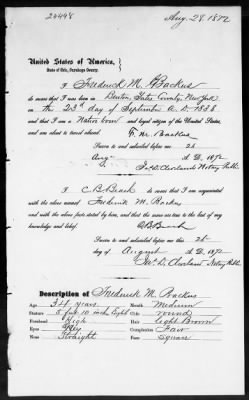 24448
Aug. 28, 1872
United States of America,
State of Ohio, Cuyahoga County.
I Frederick M. Backus
do swear that I was born in Benton, Yates County, New York
on the 23d day of September A. D. 1838
and that I am a Native born and legal citizen of the United States,
and am about to travel abroad.
F. M. Backus
Sworn to and subscribed before me
Aug A. D. 1872
Notary Public
I C B Beach do swear that I am acquainted
with the above named Frederick M. Backus
and with the above facts stated by him, and that the same are true to the best of my
knowledge and belief.
C B Beach
Sworn to and subscribed before me this
day of August A. D. 1872
Notary Public
Description of Frederick M. Backus
Age 34 years Mouth Medium
Stature 5 feet 10 inches Eight Chin round
Forehead High Hair Light Brown
Eyes Grey Complexion Fair
Nose Straight Face Square